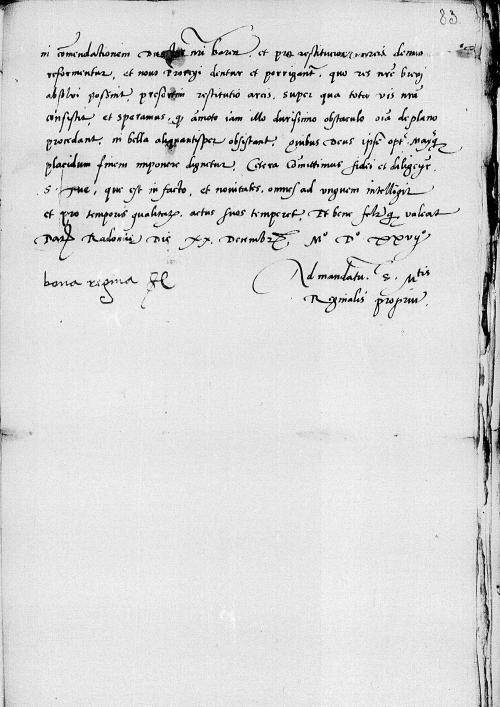 83
in comendationem Ducatus nri baren, et pro restitucione arcis denuo
reformentur, et noui processi dentur et porrigant, quo res nre breui
absolui possint, presertim restitutio arcis, super qua tota vis nra
consistit, et speramus, q amoto iam illo durissimo obstaculo oia de plano
procedant, ni bella aliquantisper obsistant, quibus Deus ipse opt. Maxq
placidum finem imponere dignetur, Cetera Comittimus fidei et diligen
S. Tue, que est in facto, et nouitates, omnes ad vnguem intelligit
et pro temporis qualitate, actus suos temperet. Et bene felrq valeat
Dat Radomie Die XX Decembr, Mo Do XXVIIo
bona regina
Ad mandatu. S. Mtis
Reginalis propriu.